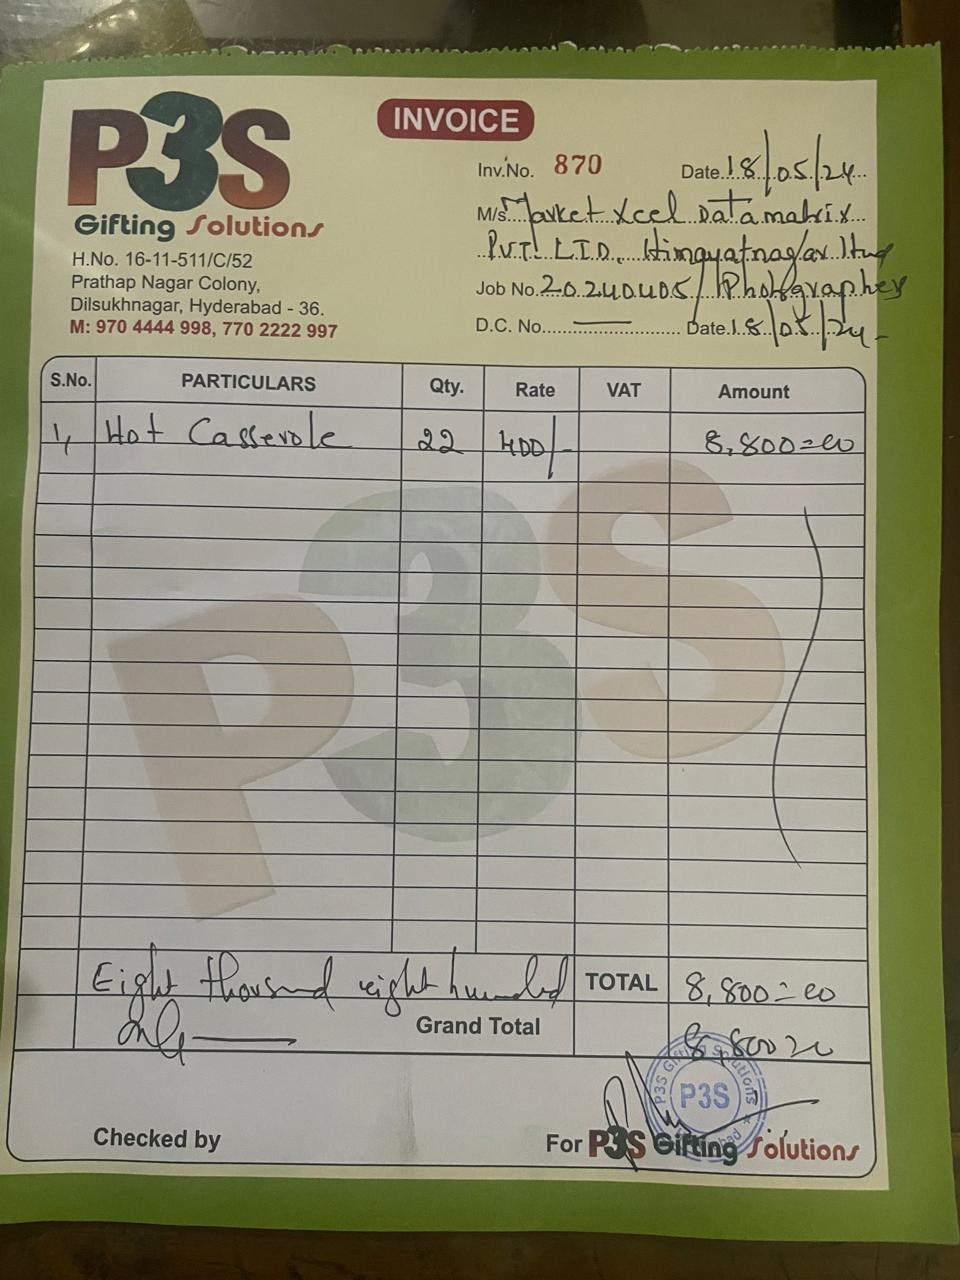 P3S
Gifting Solutions
H.No. 16-11-511/C/52
Prathap Nagar Colony,
Dilsukhnagar, Hyderabad - 36.
M: 970 4444 998, 770 2222 997
INVOICE
Inv.No. 870 Date 18/05/24
M/s Market Xcel Datamatrix
PVT. LTD. Himayatnagar Hyd
Job No. 20240405/Photographer
D.C. No. Date 18/05/24
S.No. PARTICULARS Qty. Rate VAT Amount
1, Hot Casserole 22 400/- 8,800=00
P3S
Eight thousand eight hundred TOTAL 8,800=00
only Grand Total 8,800=00
P3S Gifting Solutions
P3S
Checked by
For P3S Gifting Solutions